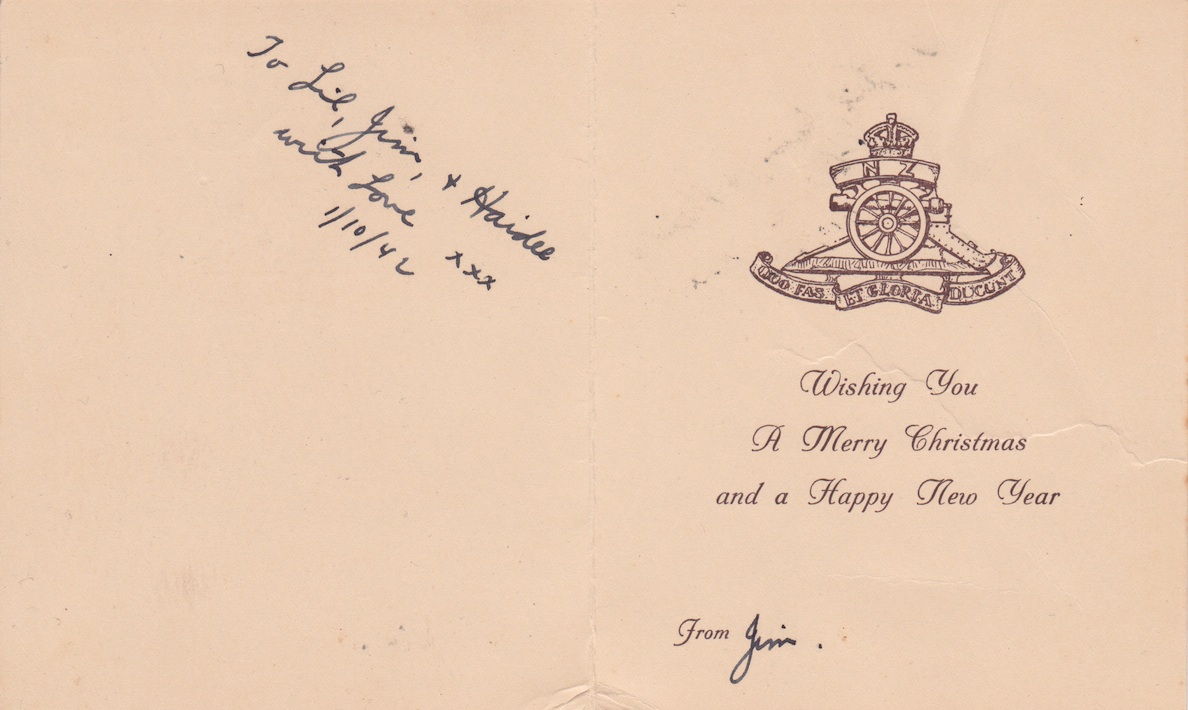 To Lil, Jim, + Haidee
with Love xxx
1/10/42
N Z
QUO FAS ET GLORIA DUCUNT
Wishing You
A Merry Christmas
and a Happy New Year
From Jim.